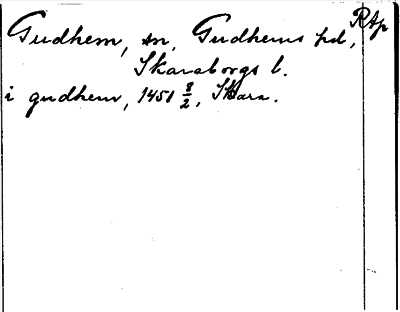 Gudhem, sn, Gudhems hd, Rtp
Skaraborgs l.
i gudhem, 1451 8/2, Skara.